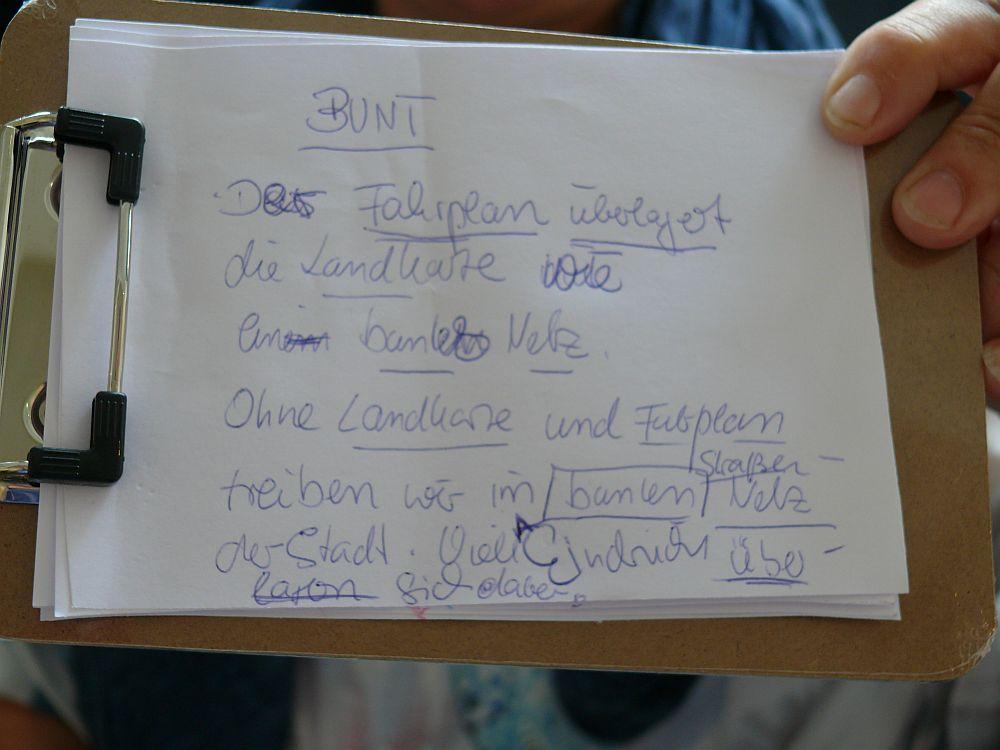 BUNT
Der Fahrplan überlagert
die Landkarte wie
ein buntes Netz.
Ohne Landkarte und Fahrplan
treiben wir im bunten Straßen-
Netz
der Stadt. Viele Eindrücke über-
lagern sich dabei.